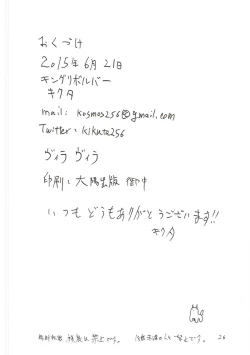 おくづけ
2015年 6月 21日
キングリボルバー
キクタ
mail: kosmos256@gmail.com
Twitter: kikuta256
ヴィラ ヴィラ
印刷: 大陽出版 御中
いつも どうもありがとうございます!!
キクタ
無断転載、複製は 禁止です。
26